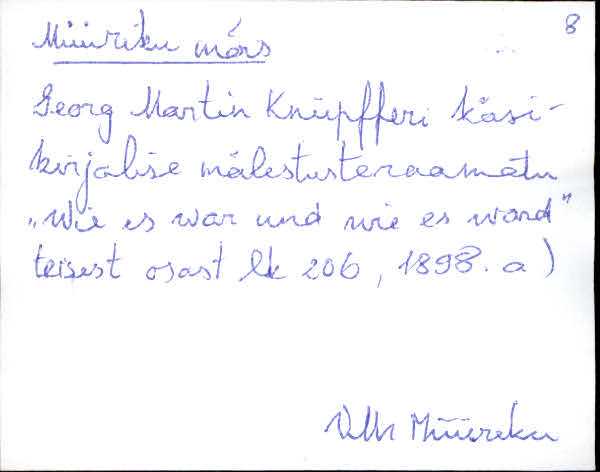 8
Müüriku mõis
Georg Martin Knüpfferi käsi-
kirjalise mälestusteraamatu
„Wie es war und wie es ward"
teisest osast lk 206, 1898. a)
Müüreku